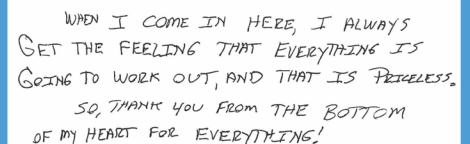 WHEN I COME IN HERE, I ALWAYS
GET THE FEELING THAT EVERYTHING IS
GOING TO WORK OUT, AND THAT IS PRICELESS.
SO, THANK YOU FROM THE BOTTOM
OF MY HEART FOR EVERYTHING!